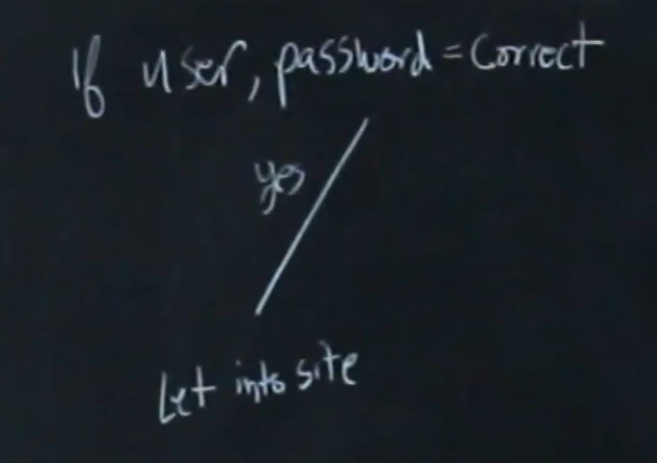 If user, password = Correct
yes
Let into site